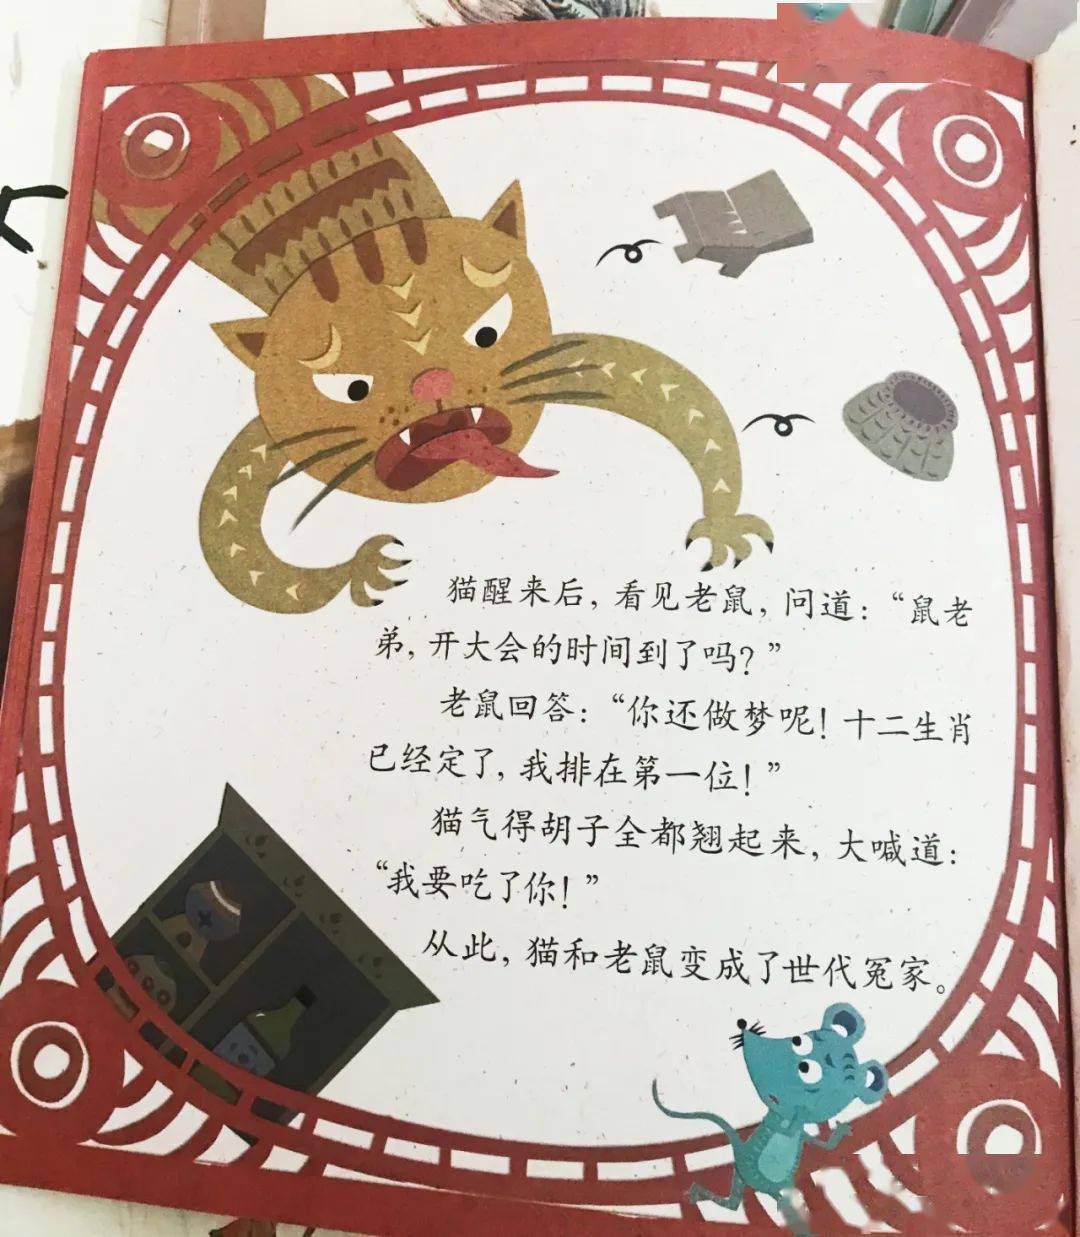 猫醒来后，看见老鼠，问道：“鼠老
弟，开大会的时间到了吗？”
老鼠回答：“你还做梦呢！十二生肖
已经定了，我排在第一位！”
猫气得胡子全都翘起来，大喊道：
“我要吃了你！”
从此，猫和老鼠变成了世代冤家。